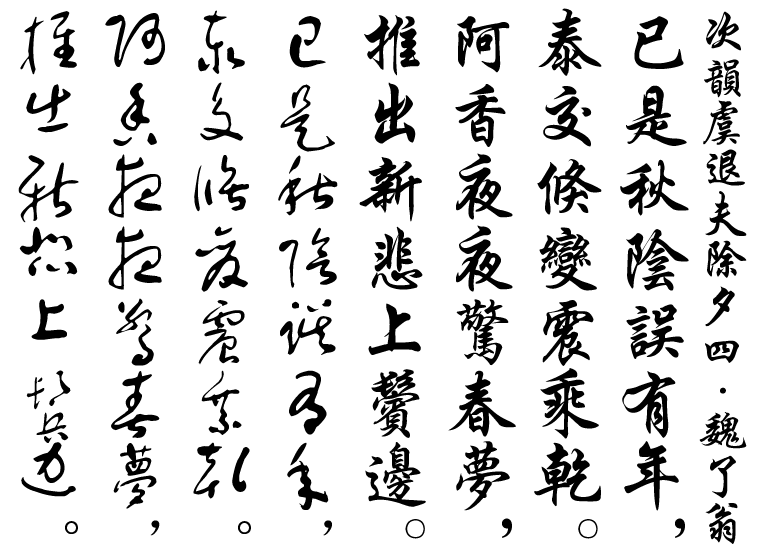 次韻虞退夫除夕四·魏了翁
已是秋陰誤有年，
泰交倏變震乘乾。
阿香夜夜驚春夢，
推出新悲上鬢邊。
已是秋陰誤有年，
泰交倏變震乘乾。
阿香夜夜驚春夢，
推出新悲上鬢邊。